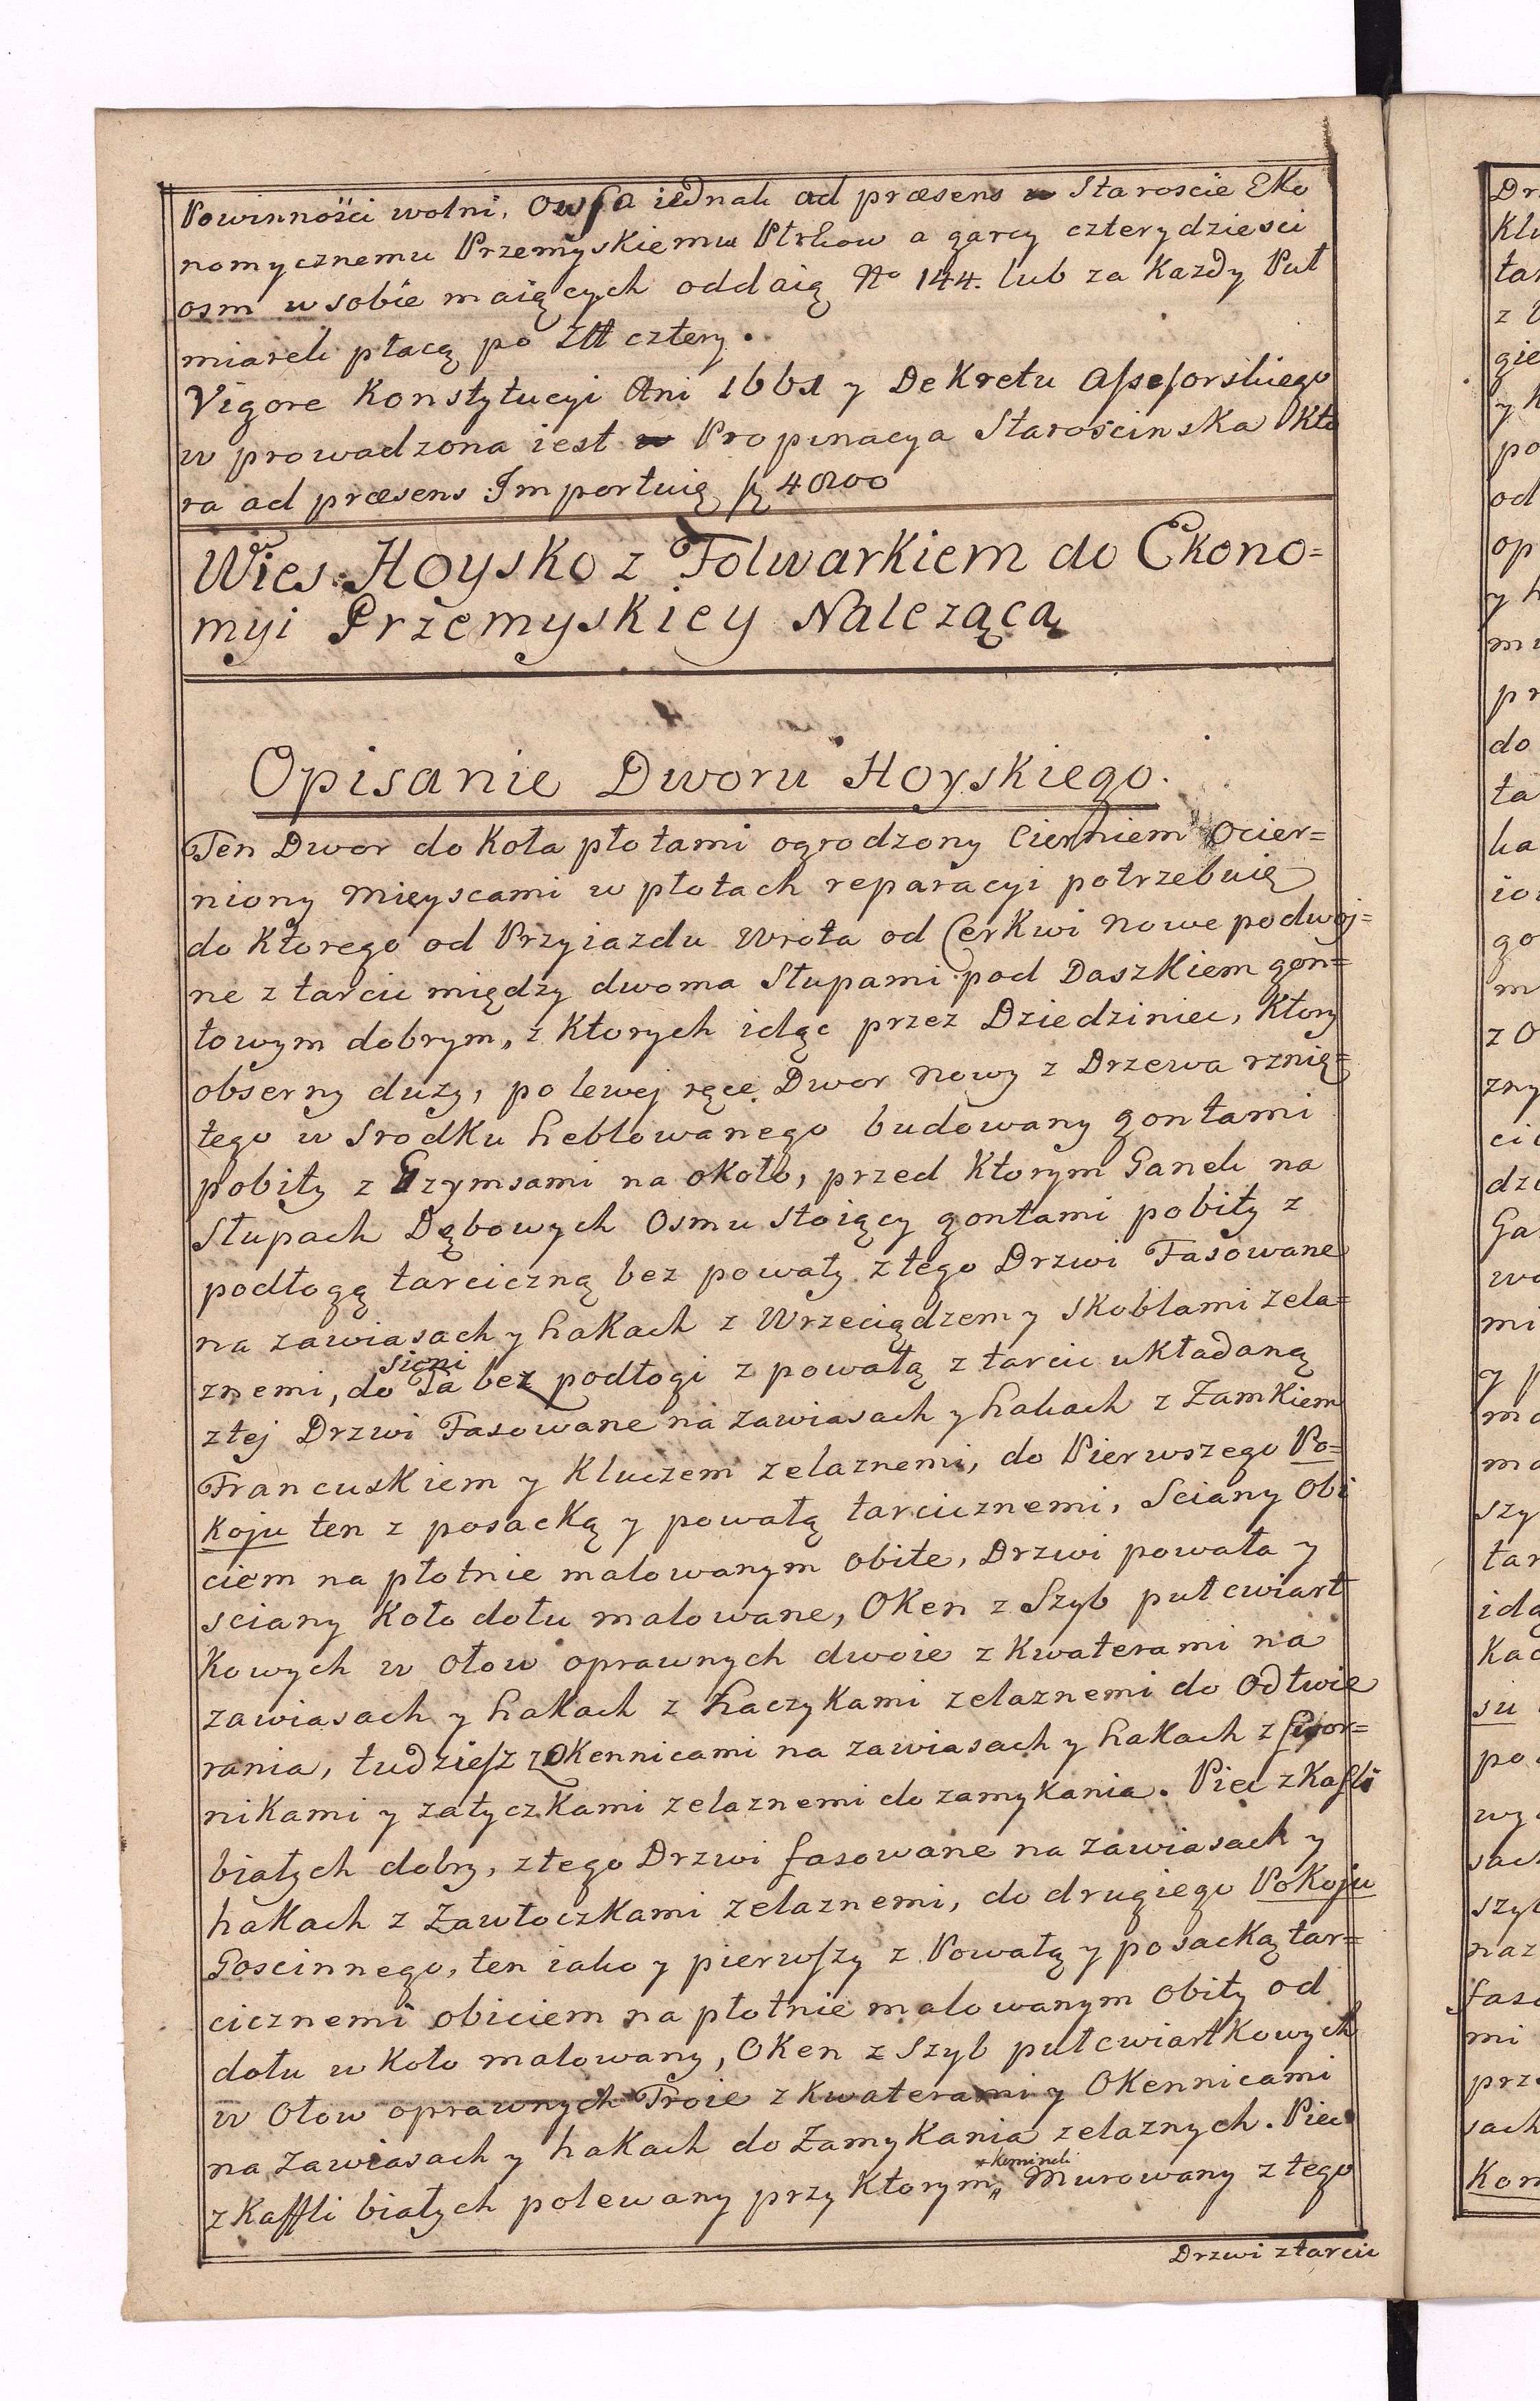 Powinności wolni, Owsa iednak ad præsens Staroscie Eko
nomycznemu Przemyskiemu Płtkow a garcy czterydziesci
osm w sobie maiących oddaią No 144. lub za Kazdy Puł
miarek płacą po Złł cztery.
Vigore Konstytucyi Ani 1661 y DeKretu Assessorskiego
w prowadzona iest Propinacya Starościnska Kto
ra ad præsens Importuię 4800
Wies Hoysko z Folwarkiem do Ekono=
myi Przemyskiey Nalezącą
Opisanie Dworu Hoyskiego.
Ten Dwor do Koła płotami ogrodzony Cierniem Ocier=
niony mieyscami w płotach reparacyi potrzebuię
do Ktorego od Przyiazdu Wrota od CerKwi nowe podwoj=
ne z tarcic między dwoma Słupami pod DaszKiem gon=
towym dobrym, z Ktorych idąc przez Dziedziniec, Ktory
obserny duzy, po lewej ręce Dwor nowy z Drzewa rznię=
tego w SrodKu heblowanego budowany gontami
pobity z Gzymsami na około, przed Ktorym Ganek na
Słupach Dębowych Osmu stoiący gontami pobity z
podłogą tarciczną bez powały z tego Drzwi Fasowane
na zawiasach y haKach z Wrzeciądzem y SKoblami zela=
sieni
znemi, do Ta bez podłogi z powałą z tarcic uKładaną
z tej Drzwi Fasowane na zawiasach y hakach z ZamKiem
FrancusKiem y Kluczem zelaznemi, do Pierwszego Po=
Koju ten z posacKą y powałą tarcicznemi, Sciany Obi
ciem na płotnie malowanym obite, Drzwi powała y
sciany Koło dołu malowane, OKen z Szyb pułcwiart
Kowych w Ołow oprawnych dwoie z Kwaterami na
zawiasach y haKach z haczyKami zelaznemi do Odtwie
rania, tudziesz z OKennicami na zawiasach y haKach z swor=
niKami y zatyczKami zelaznemi do zamyKania. Piec z Kafli
białych dobry, z tego Drzwi fasowane na zawiasach y
haKach z ZawłoczKami zelaznemi, do drugiego PoKoju
Goscinnego, ten iako y pierwszy z Powałą y posacKą tar=
cicznemi obiciem na płotnie malowanym Obity od
dołu w Koło malowany, OKen z Szyb pułcwiartKowych
w Ołow oprawnych Troie z Kwaterami y OKennicami
na Zawiasach y haKach do ZamyKania zelaznych. Piec
Kominek
z Kaffli białych polewany przy Ktorym Murowany z tego
Drzwi z tarcic